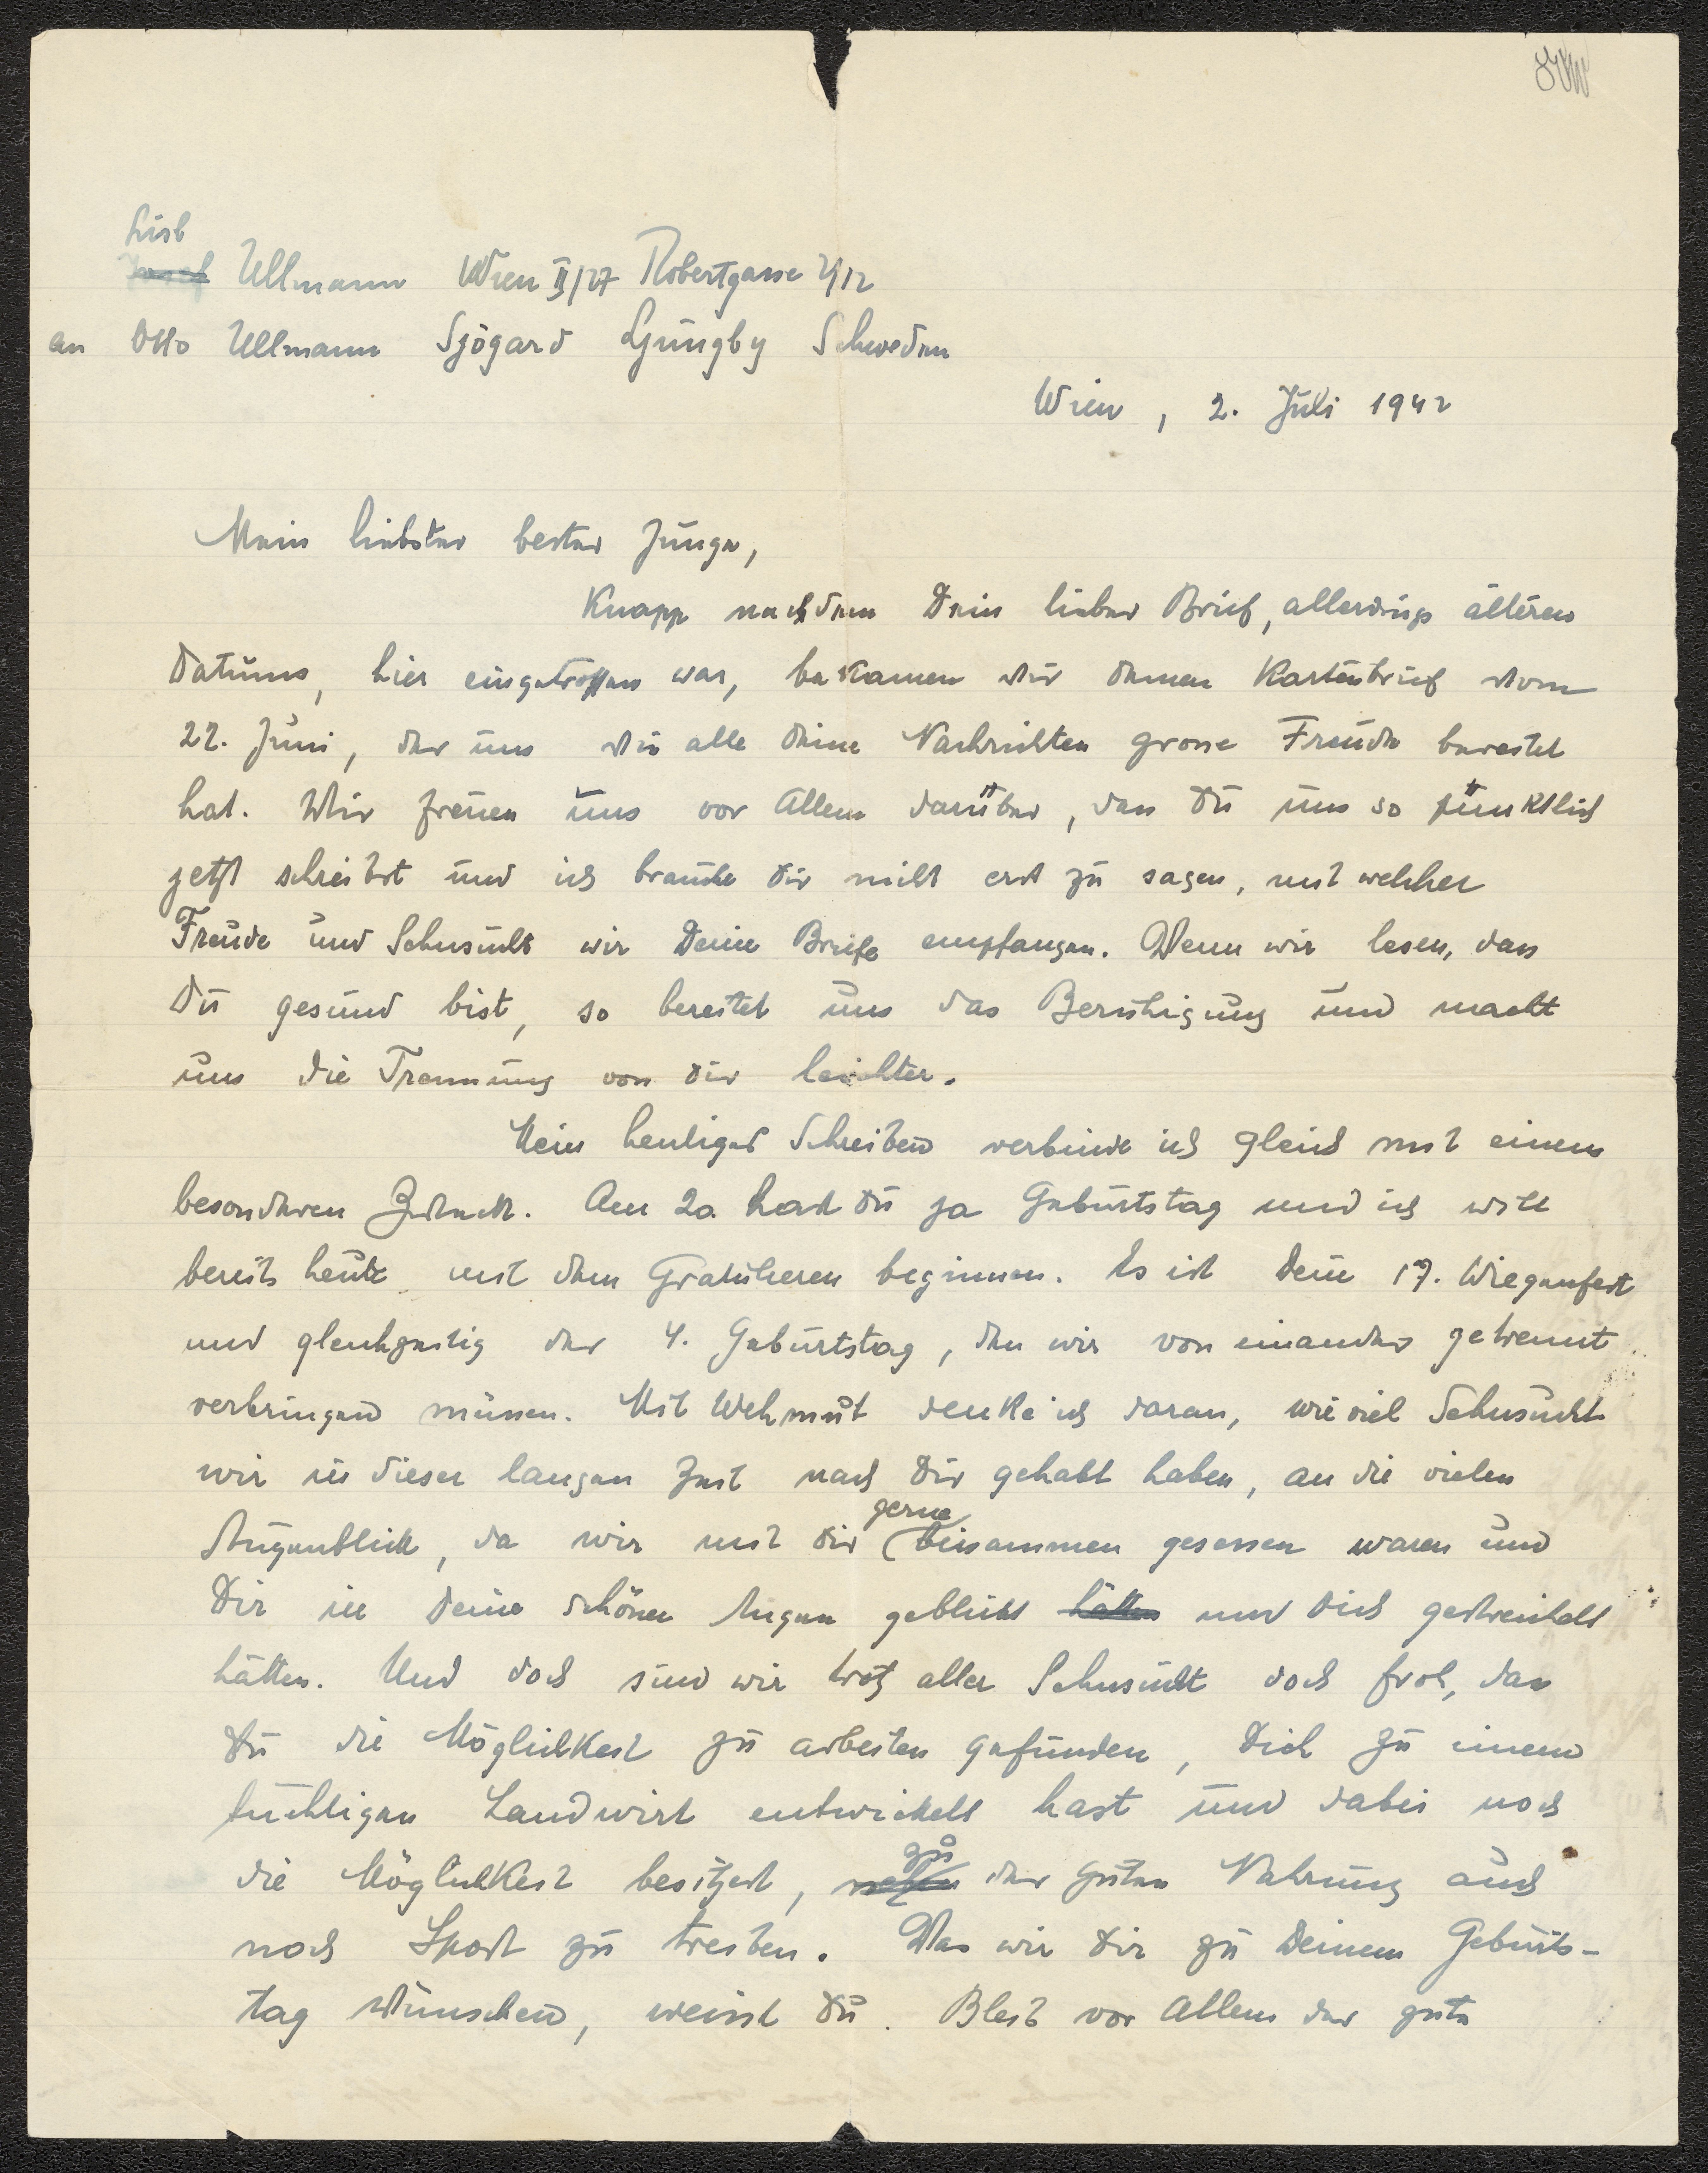 Lisl
Josef Ullmann Wien II/27 Robertgasse 2/12
an Otto Ullmann Sjögard Ljungby Schweden
Wien, 2. Juli 1942
Mein liebster bester Junge,
Knapp nachdem Dein lieber Brief, allerdings älteren
Datums, hier eingetroffen war, bekamen wir deinen Kartenbrief vom
22. Juni, der uns wie alle deine Nachrichten grosse Freude bereitet
hat. Wir freuen uns vor Allem darüber, dass Du uns so pünktlich
jetzt schreibst und ich brauche Dir nicht erst zu sagen, mit welcher
Freude und Sehnsucht wir Deine Briefe empfangen. Wenn wir lesen, dass
Du gesund bist, so bereitet uns das Beruhigung und macht
uns die Trennung von Dir leichter.
Mein heutiges Schreiben verbinde ich gleich mit einem
besonderen Zweck. Am 20. hast Du ja Geburtstag und ich will
bereits heute mit dem Gratulieren beginnen. Es ist Dein 17. Wiegenfest
und gleichzeitig der 4. Geburtstag, den wir von einander getrennt
verbringen müssen. Mit Wehmut denke ich daran, wie viel Sehnsucht
wir in dieser langen Zeit nach Dir gehabt haben, an die vielen
Augenblick, da wir mit Dir gerne beisammen gesessen waren und
Dir in Deine schönen Augen geblickt hätten und Dich gestreichelt
hätten. Und doch sind wir trotz aller Sehnsucht doch froh, dass
Du die Möglichkeit zu arbeiten gefunden, Dich zu einem
tüchtigen Landwirt entwickelt hast und dabei noch
die Möglichkeit besitzest, neben zu der guten Nahrung auch
noch Sport zu treiben. Was wir Dir zu Deinem Geburts-
tag wünschen, weisst Du. Bleib vor Allem der gute